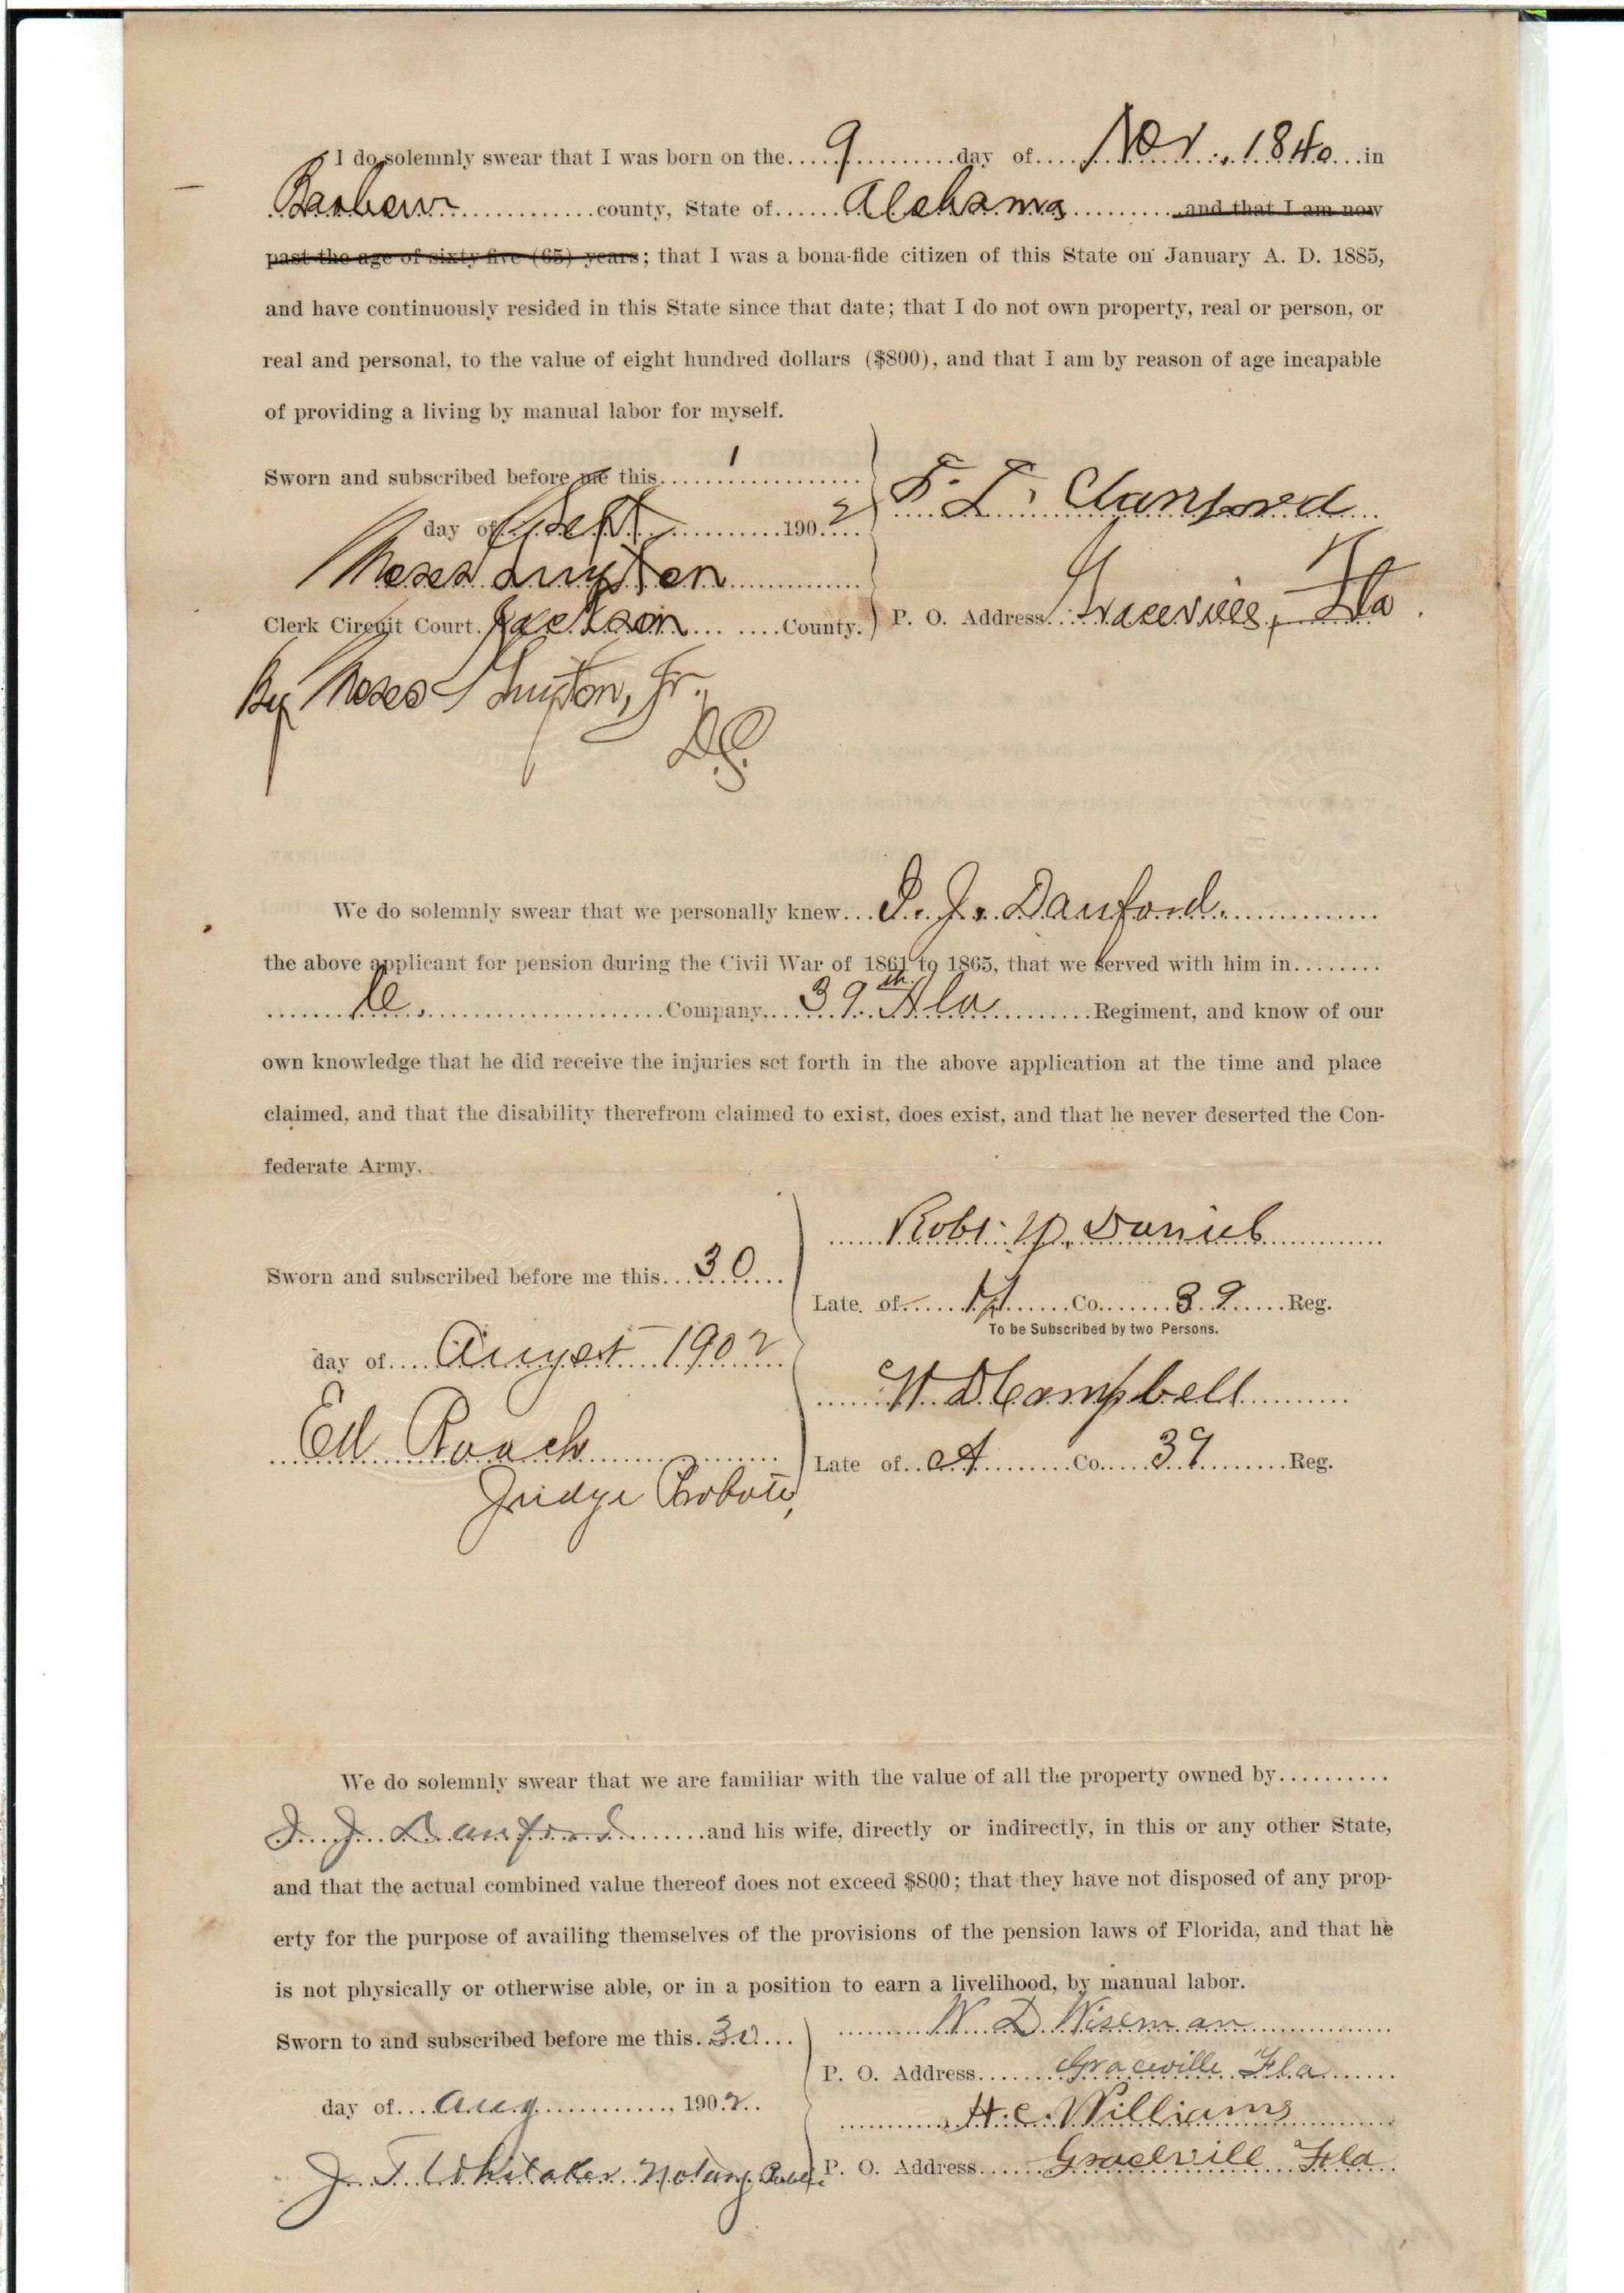 I do solemnly swear that I was born on the....9.........day of....Nov., 1840...in
Barbour.............county, State of......Alabama..........and that I am now
past the age of sixty-five (65) years; that I was a bona-fide citizen of this State on January A. D. 1885,
and have continuously resided in this State since that date; that I do not own property, real or person, or
real and personal, to the value of eight hundred dollars ($800), and that I am by reason of age incapable
of providing a living by manual labor for myself.
Sworn and subscribed before me this......1..............
day of Sept............1902....
Moses Guyton..............
Clerk Circuit Court. Jackson.... ....County.
By Moses Guyton, Jr.,
D.C.
P. O. Address...Graceville, Fla.
We do solemnly swear that we personally knew...J. J. Danford...............
the above applicant for pension during the Civil War of 1861 to 1865, that we served with him in........
........................Company....39th Ala..........Regiment, and know of our
own knowledge that he did receive the injuries set forth in the above application at the time and place
claimed, and that the disability therefrom claimed to exist, does exist, and that he never deserted the Con-
federate Army.
Sworn and subscribed before me this...30....
day of....August 1902...
Ed Roach
Judge Probate,
Robt. Y. Daniel
Late of.............Co........39......Reg.
To be Subscribed by two Persons.
W D Campbell
Late of..A.........Co.....39........Reg.
We do solemnly swear that we are familiar with the value of all the property owned by..........
J. J. Danford........and his wife, directly or indirectly, in this or any other State,
and that the actual combined value thereof does not exceed $800; that they have not disposed of any prop-
erty for the purpose of availing themselves of the provisions of the pension laws of Florida, and that he
is not physically or otherwise able, or in a position to earn a livelihood, by manual labor.
Sworn to and subscribed before me this. 30...
day of....Aug............, 1902..
J. T. Whitaker Notary Public
W. D. Wiseman
P. O. Address......Graceville Fla......
H. C. Williams
P. O. Address......Gracevill Fla.